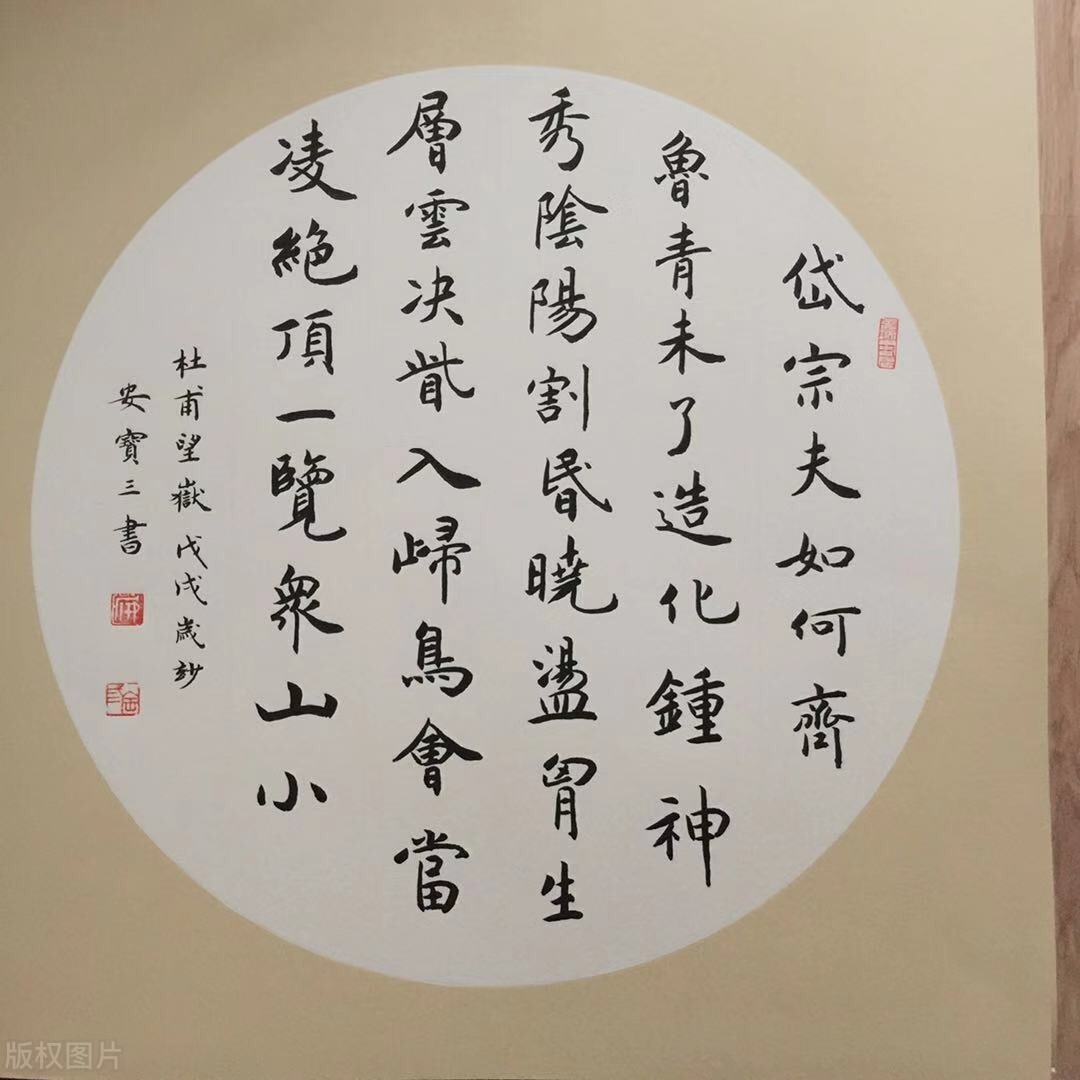 岱宗夫如何齊
魯青未了造化鍾神
秀陰陽割昬曉盪胷生
層雲决眥入歸鳥會當
凌絶頂一覽衆山小
杜甫望嶽戊戌歲杪
安寶三書
版权图片